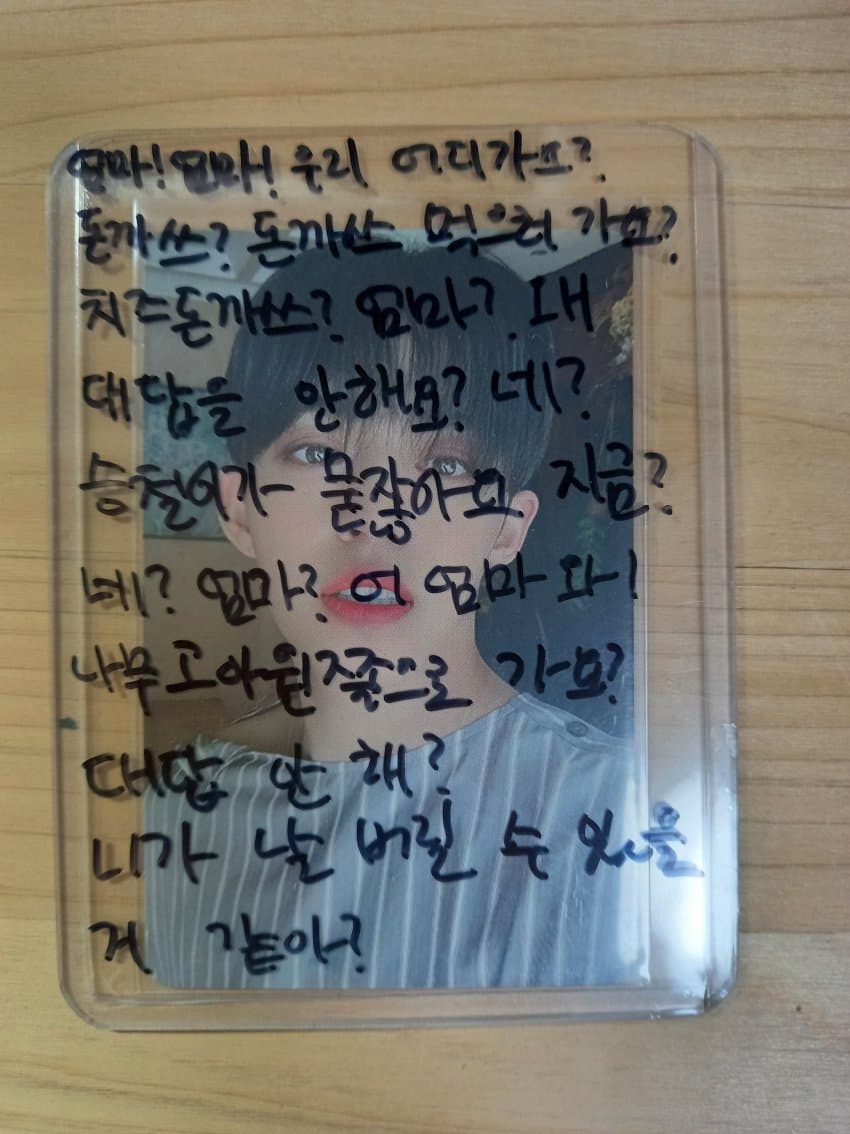 엄마! 엄마! 우리 어디가요?
돈까쓰? 돈까쓰 먹으러 가요?
치즈돈까쓰? 엄마? 왜
대답을 안해요? 네?
승철이가 묻잖아요 지금?
네? 엄마? 어 엄마 와!
나무고아원쪽으로 가요?
대답 안 해?
니가 날 버릴 수 있을
거 같아?